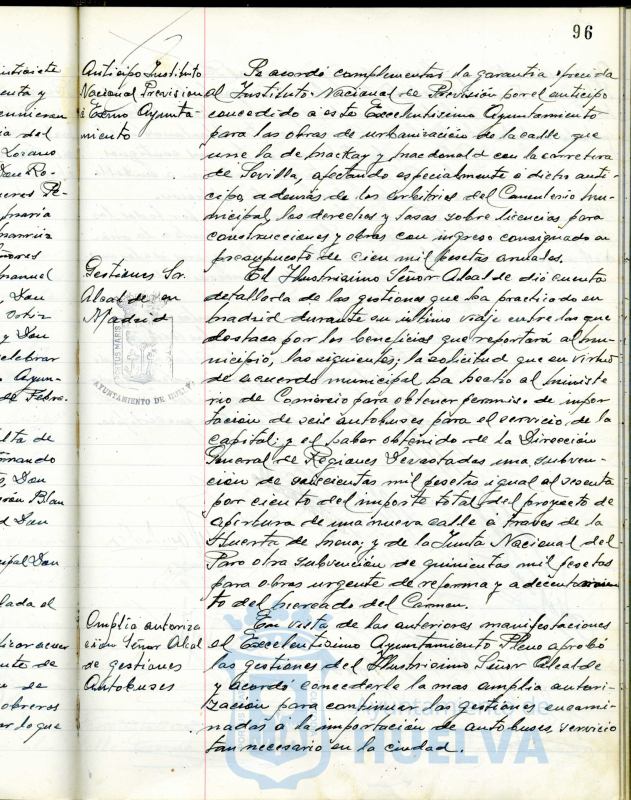 96
Anticipo Instituto
Nacional Prevision
a Excmo Ayunta-
miento
Se acordó complementar la garantía ofrecida
al Instituto Nacional de Previsión por el anticipo
concedido a este Excelentísimo Ayuntamiento
para las obras de urbanización de la calle que
une la de Mackay y Macdonald con la carretera
de Sevilla, afectando especialmente a dicho anti-
cipo, además de los arbitrios del Cementerio mu-
nicipal, los derechos y tasas sobre licencias para
construcciones y obras con ingreso consignado en
presupuesto de cien mil pesetas anuales.
Gestiones Sr.
Alcalde en
Madrid
El Ilustrísimo Señor Alcalde dió cuenta
detallada de las gestiones que ha practicado en
Madrid durante su último viaje entre las que
destaca por los beneficios que reportará al mu-
nicipio, las siguientes: la solicitud que en virtud
de acuerdo municipal ha hecho al ministe
rio de Comercio para obtener permiso de impor
tación de seis autobuses para el servicio de la
capital; y el haber obtenido de la Dirección
General de Regiones Devastadas una subven-
ción de seiscientas mil pesetas igual al sesenta
por ciento del importe total del proyecto de
apertura de una nueva calle a través de la
Huerta de Mena; y de la Junta Nacional del
Paro otra subvención de quinientas mil pesetas
para obras urgente de reforma y adecentamien
to del Mercado del Carmen.
Amplia autoriza
ción Señor Alcal
de gestiones
Autobuses
En vista de las anteriores manifestaciones
el Excelentísimo Ayuntamiento Pleno aprobó
las gestiones del Ilustrísimo Señor Alcalde
y acordó concederle la mas amplia autori-
zación para continuar las gestiones encami-
nadas a la importación de autobuses, servicio
tan necesario en la ciudad.
AYUNTAMIENTO DE HUELVA
Ayuntamiento de
HUELVA